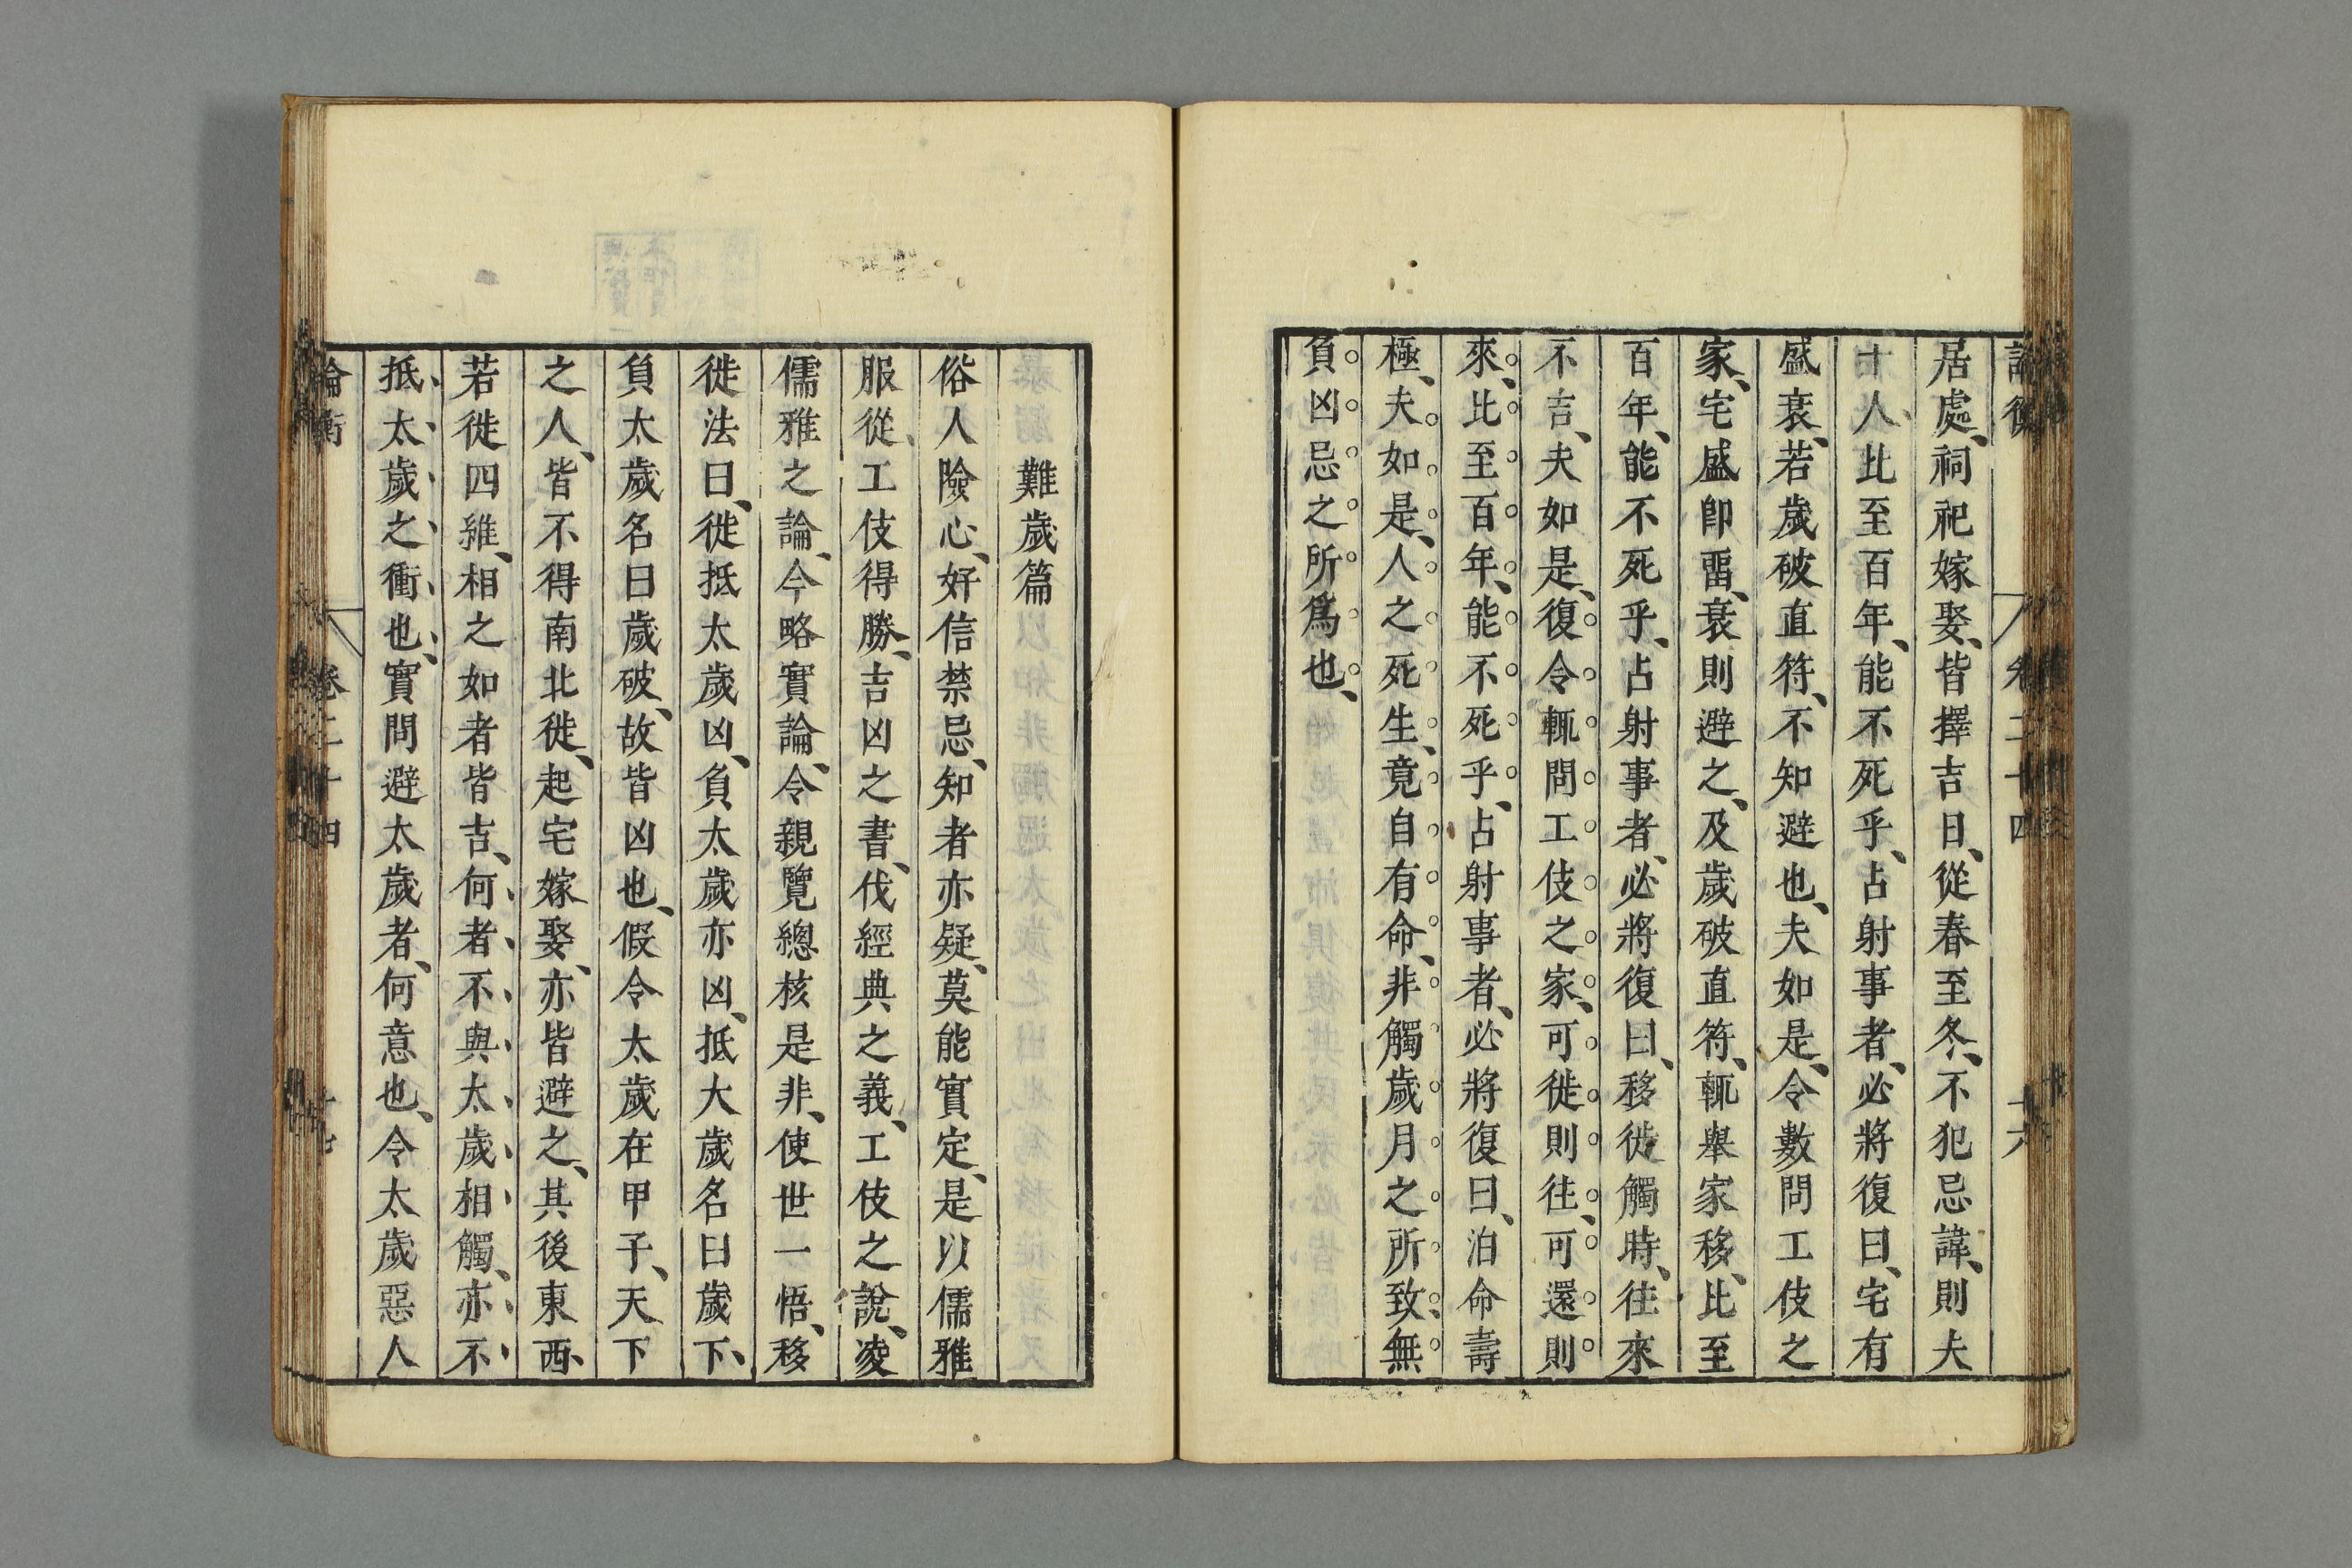 論衡 卷二十四 十六
居處、祠祀嫁娶、皆擇吉日、從春至冬、不犯忌諱、則夫
十人、比至百年、能不死乎、占射事者、必將復曰、宅有
盛衰、若歲破直符、不知避也、夫如是、令數問工伎之
家、宅盛卽畱、衰則避之、及歲破直符、輒舉家移、比至
百年、能不死乎、占射事者、必將復曰、移徙觸時、往來
不吉、夫如是、復令輒問工伎之家、可徙則往、可還則
來、比至百年、能不死乎、占射事者、必將復曰、泊命壽
極、夫如是、人之死生、竟自有命、非觸歲月之所致、無
負凶忌之所爲也、
難歲篇
俗人險心、好信禁忌、知者亦疑、莫能實定、是以儒雅
服從、工伎得勝、吉凶之書、伐經典之義、工伎之說、凌
儒雅之論、今略實論、令親覽總核是非、使世一悟、移
徙法曰、徙抵太歲凶、負太歲亦凶、抵大歲名曰歲下、
負太歲名曰歲破、故皆凶也、假令太歲在甲子、天下
之人、皆不得南北徙、起宅嫁娶、亦皆避之、其後東西、
若徙四維、相之如者皆吉、何者、不與太歲相觸、亦不
抵太歲之衝也、實問避太歲者、何意也、令太歲惡人
論衡 卷二十四 十七